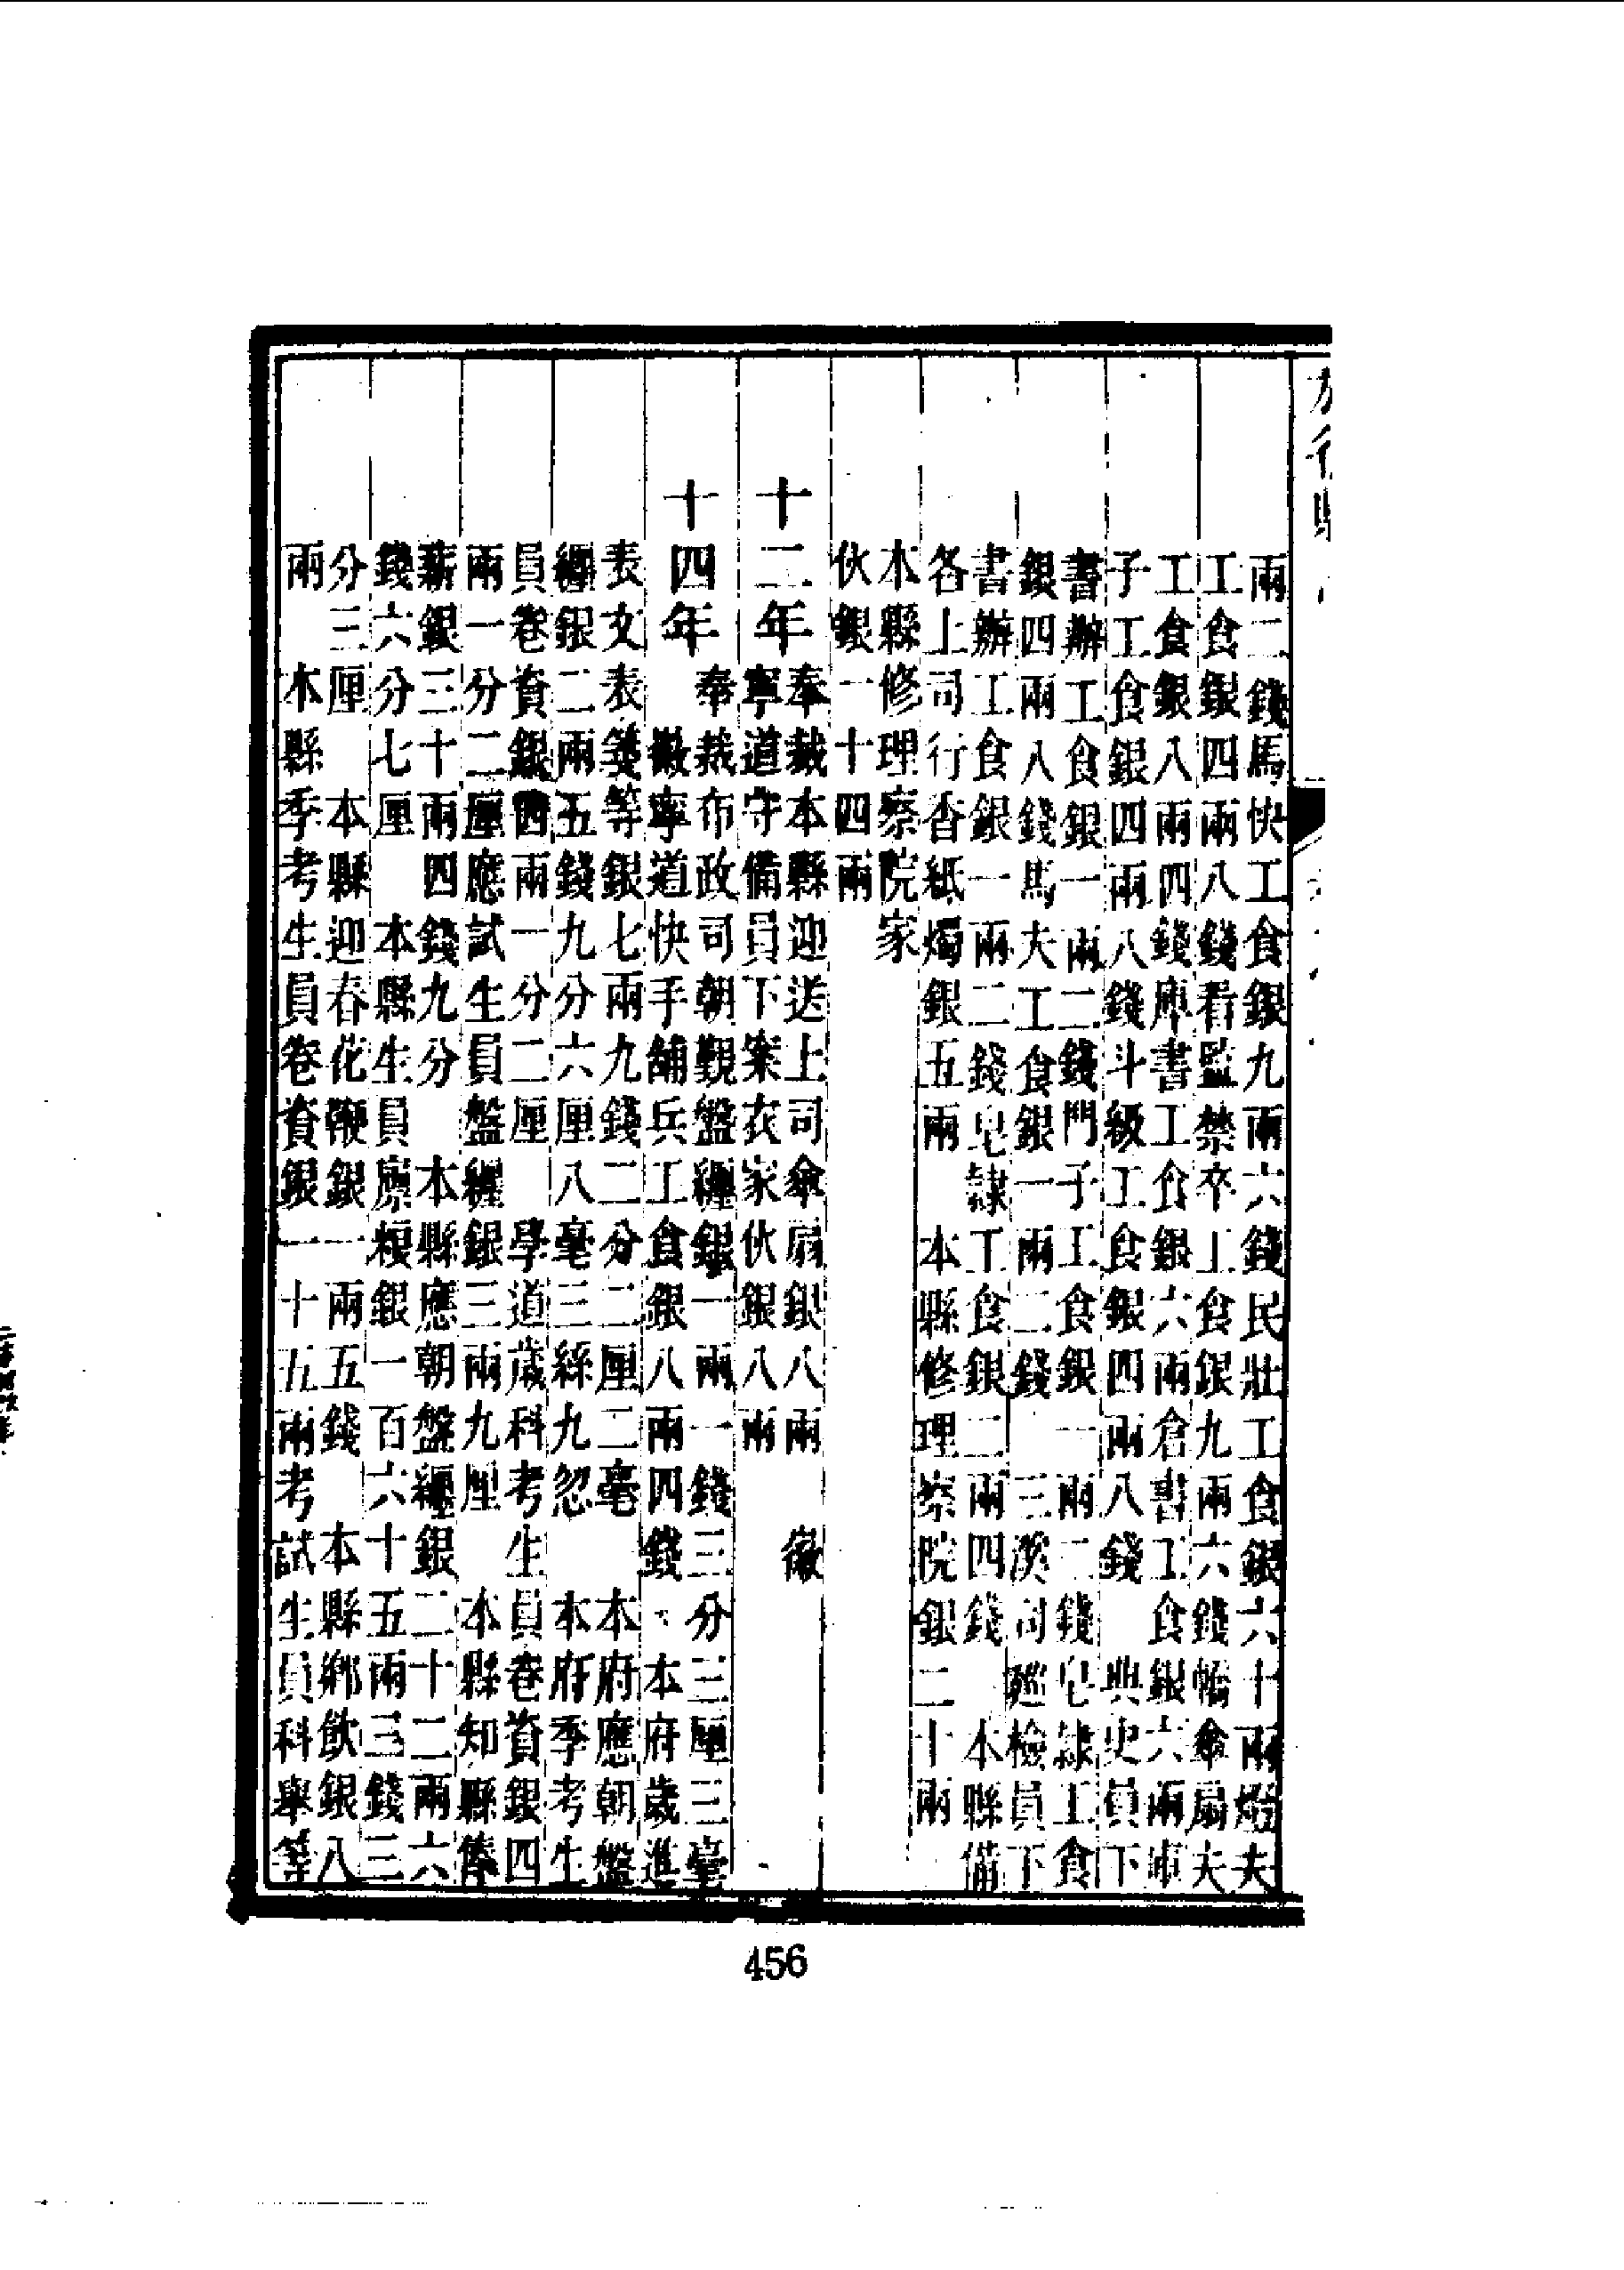 兩二錢馬快工食銀九兩六錢民壯工食銀六十兩燈夫
工食銀四兩八錢看監禁卒工食銀九兩六錢轎傘扇夫
工食銀八兩四錢庫書工食銀六兩倉書工食銀六兩庫
子工食銀四兩八錢斗級工食銀四兩八錢 典史員下
書辦工食銀一兩二錢門子工食銀一兩二錢皂隸工食
銀四兩八錢馬夫工食銀一兩二錢 三溪司巡檢員下
書辦工食銀一兩二錢皂隸工食銀二兩四錢 本縣備
各上司行香紙燭銀五兩 本縣修理察院銀二十兩
本縣修理察院家
伙銀一十四兩
十二年
奉裁本縣迎送上司傘扇銀八兩 徽
寧道守備員下案衣家伙銀八兩
十四年
奉裁布政司朝觀盤纏銀一兩一錢三分三厘三毫
徽寧道快手舖兵工食銀八兩四錢 本府歲進
表文表箋等銀七兩九錢二分二厘二毫 本府應朝盤
纏銀二兩五錢九分六厘八毫三絲九忽 本府季考生
員卷資銀四兩一分二厘 學道歲科考生員卷資銀四
兩一分二厘應試生員盤纏銀三兩九厘 本縣知縣俸
薪銀三十兩四錢九分 本縣應朝盤纏銀二十二兩六
錢六分七厘 本縣生員廪糧銀一百六十五兩三錢三
分三厘 本縣迎春花鞭銀一兩五錢 本縣鄉飲銀八
兩 本縣季考生員卷資銀一十五兩考試生員科舉等
456